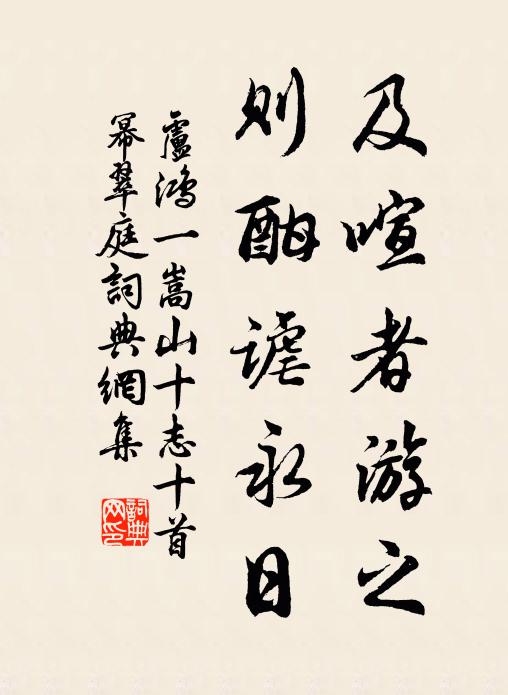 及喧者游之
則酣謔永日
盧鴻一嵩山十志十首
冪翠庭詞典網集
詞典
网印